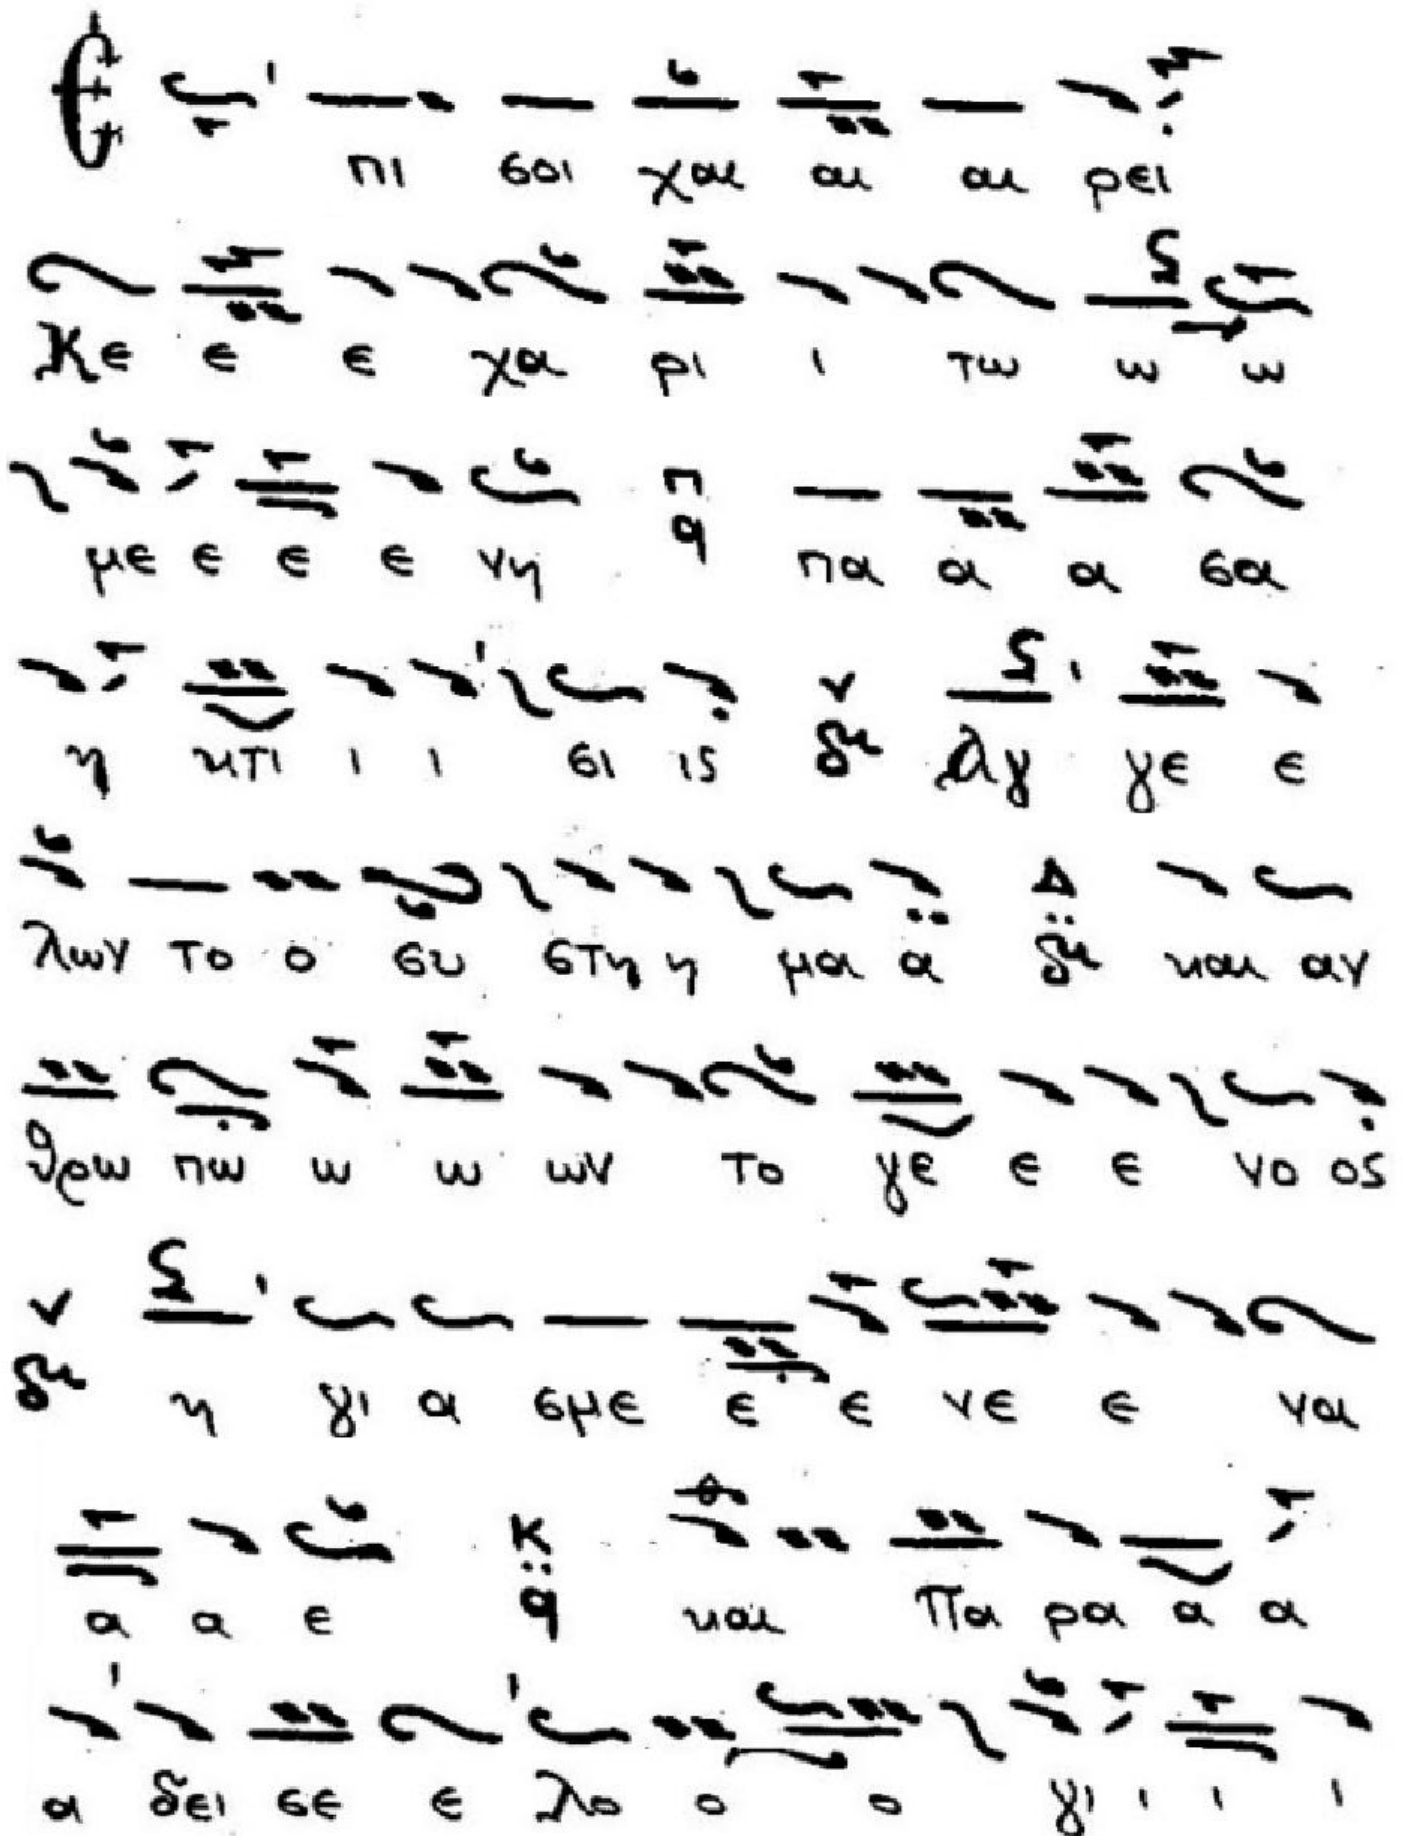 Ε πι σοι χαι αι αι ρει
Κε ε ε χα ρι ι τω ω ω
με ε ε ε νη π q πα α α σα
η κτι ι ι σι ις ν δι Αγ γε ε
λων το ο συ στη η μα α Δ δι και αν
θρω πω ω ω ων το γε ε ε νο ος
ν δι η γι α σμε ε ε νε ε να
α α ε κ q και Πα ρα α α
α δει σε ε λο ο ο γι ι ι ι